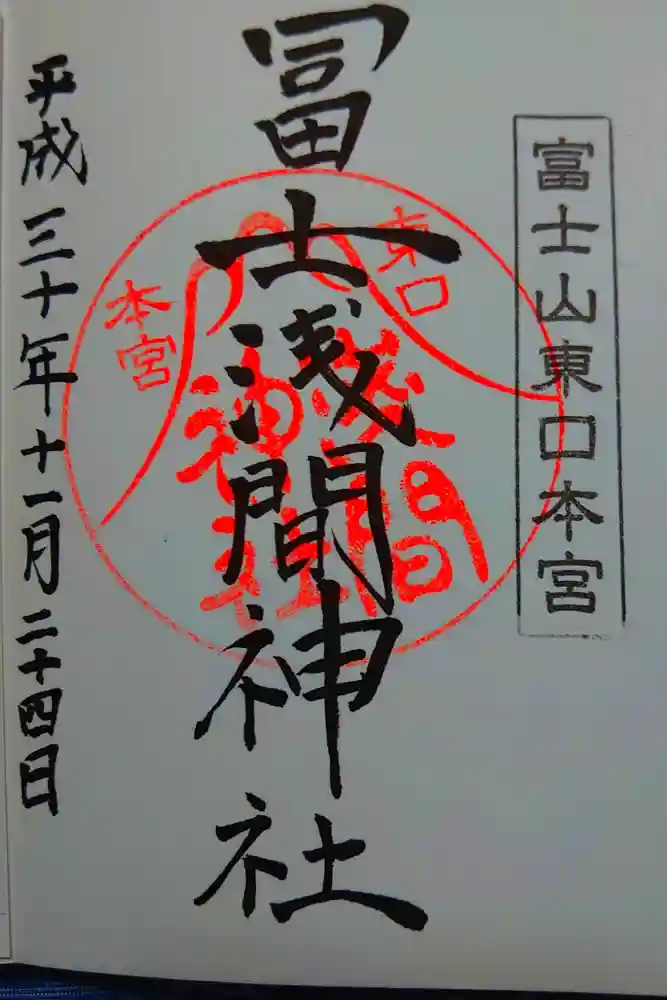 富士山東口本宮
冨士浅間神社
東口
本宮
浅間
神社
平成三十年十一月二十四日